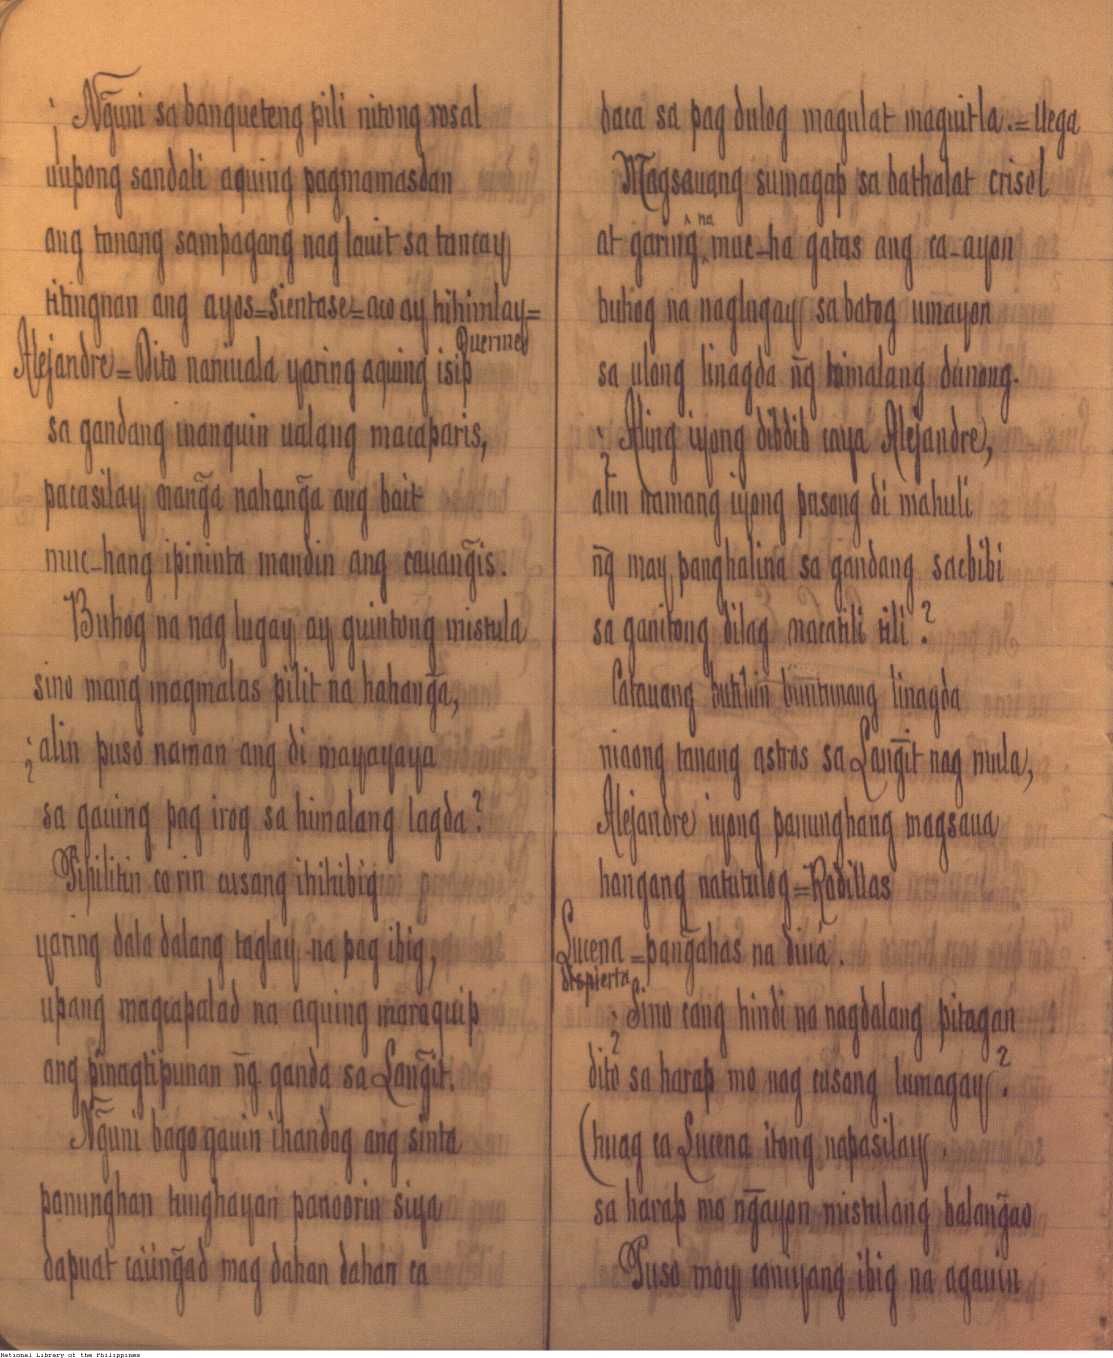 ¡ Ng̃uni sa banqueteng pili nitong rosal
uupong sandali aquing pagmamasdan
ang tanang sampagang nag lauit sa tancay
titingnan ang ayos=Sientase=aco ay hihimlay=
Duerme
Alejandre=Dito naniuala yaring aquing isip
sa gandang inanquin ualang macaparis,
pacasilay, mang̃a nahang̃a ang bait
muc-hang ipininta mandin ang cauang̃is.
Buhog na nag lugay ay guintong mistula
sino mang magmalas pilit na hahang̃a,
¿ alin puso naman ang di mayayaya
sa gauing pag irog sa himalang lagda?
Pipilitin co rin cusang ihihibig
yaring dala dalang taglay na pag ibig,
upang magcapalad na aquing maraquip
ang pinagtipunan ng̃ ganda sa Lang̃it.
Ng̃uni bago gauin ihandog ang sinta
panunghan tunghayan panoorin siya
dapuat caiing̃ad mag dahan dahan ca
baca sa pag dulog magulat maguitla.=Llega
Magsauang sumagap sa bathalat crisol
at garing na muc-ha gatas ang ca-ayon
buhog na naglugay sa batog umayon
sa ulong linagda ng̃ himalang dunong.
¿ Aling iyong dibdib caya Alejandre,
alin namang iyong pusong di mahuli
ng̃ may panghalina sa gandang sacbibi
sa ganitong dilag macatili tili?
Catauang butihin bunitunang linagda
niaong tanang astros sa Lang̃it nag mula,
Alejandre iyong panunghang magsaua
hangang natutulog=Rodillas
Lucena=pang̃ahas na diua.
despierta
¿ Sino cang hindi na nagdalang pitagan
dito sa harap mo nag cusang lumagay?
(huag ca Lucena itong napasilay.
sa harap mo ng̃ayon mistulang balang̃ao
Puso moy caniyang ibig na agauin